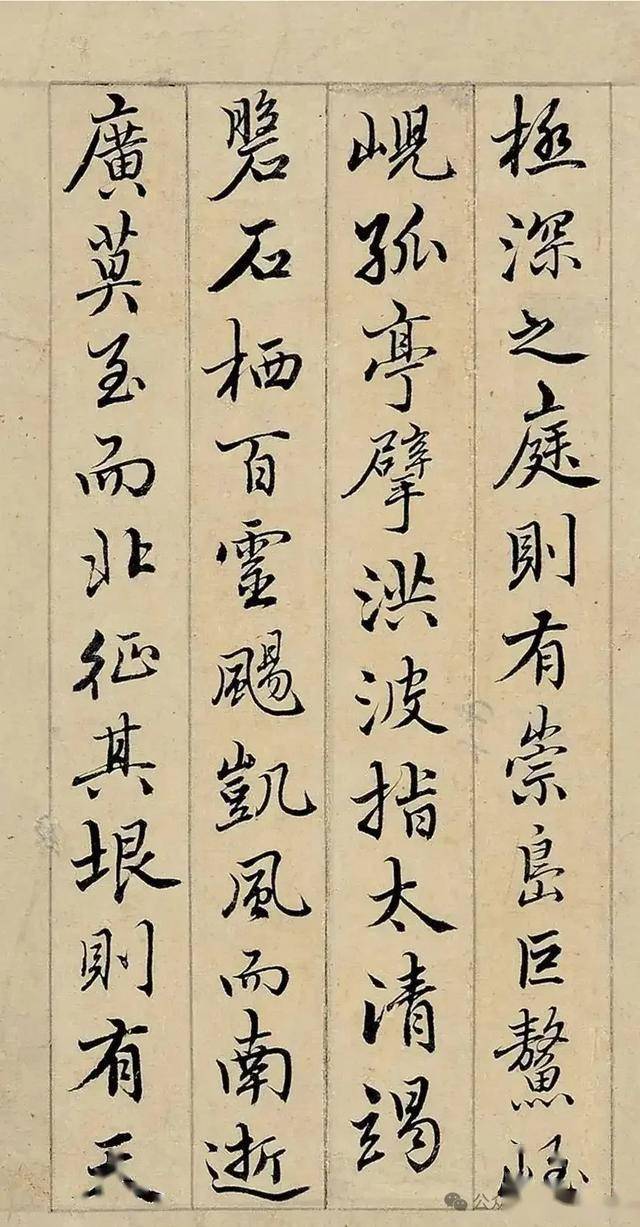 極深之庭則有崇島巨鼇峌
峴孤亭擘洪波指太清竭
磐石栖百靈颺凱風而南逝
廣莫至而北征其垠則有天
公众